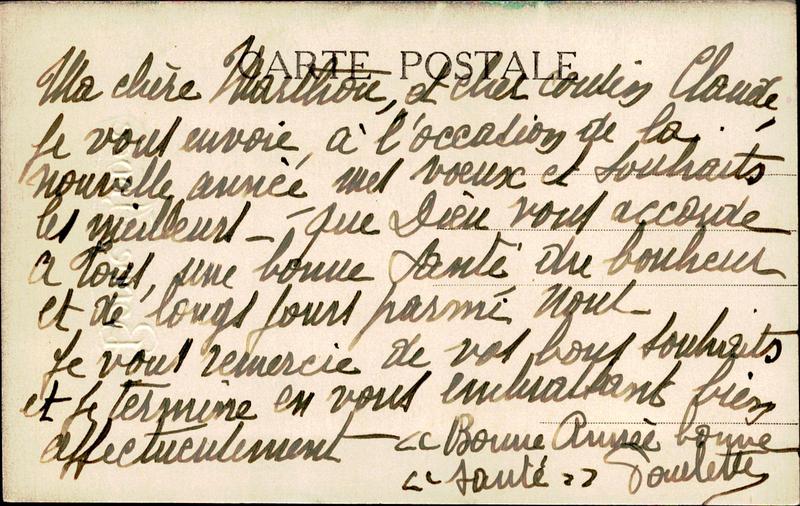 CARTE POSTALE
Ma chère Marthou, et cher cousin Claude,
Je vous envoie, à l'occasion de la
nouvelle année mes voeux et souhaits
les meilleurs – que Dieu vous accorde
a tous, une bonne santé du bonheur
et de longs jours parmi nous –
Je vous remercie de vos bons souhaits
et je termine en vous embrassant bien
affectueusement – << Bonne Année bonne
<< santé >> Paulette